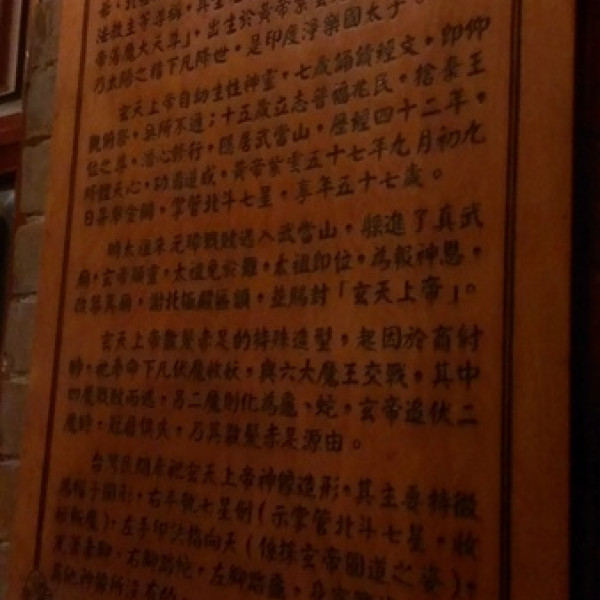 法教主等尊稱,
帝蕩魔大天尊」,出生於黃帝紫雲
乃太陽之精下凡降世,是印度淨樂國太子。
玄天上帝自幼生性神靈,七歲誦讀經文,即仰
觀俯察,無所不通;十五歲立志普福衆民,捨棄王
位之尊,潛心修行,隱居武當山,歷經四十二年,
體天心,功滿道成,黃帝紫雲五十七年九月初九
日昇舉金闕,掌管北斗七星,享年五十七歲。
明太祖朱元璋戰敗逃入武當山,躲進了真武
廟,玄帝顯靈,太祖免於難,太祖即位,為報神恩,
改築其廟,謝北極殿匾額,並賜封「玄天上帝」。
玄天上帝散髮赤足的特殊造型,起因於商紂
時,祂奉命下凡伏魔收妖,與六大魔王交戰,其中
四魔戰敗而逃,另二魔則化為龜、蛇,玄帝追伏二
魔時,冠眉俱失,乃其散髮赤足源由。
台灣民間奉祀玄天上帝神像造形,其主要特徵
為帽子圓形,右手執七星劍(示掌管北斗七星,收
妖斬魔),左手印訣指向天(係採玄帝圓道之姿),
右腳踏蛇,左腳踏龜,
其他神像所沒有